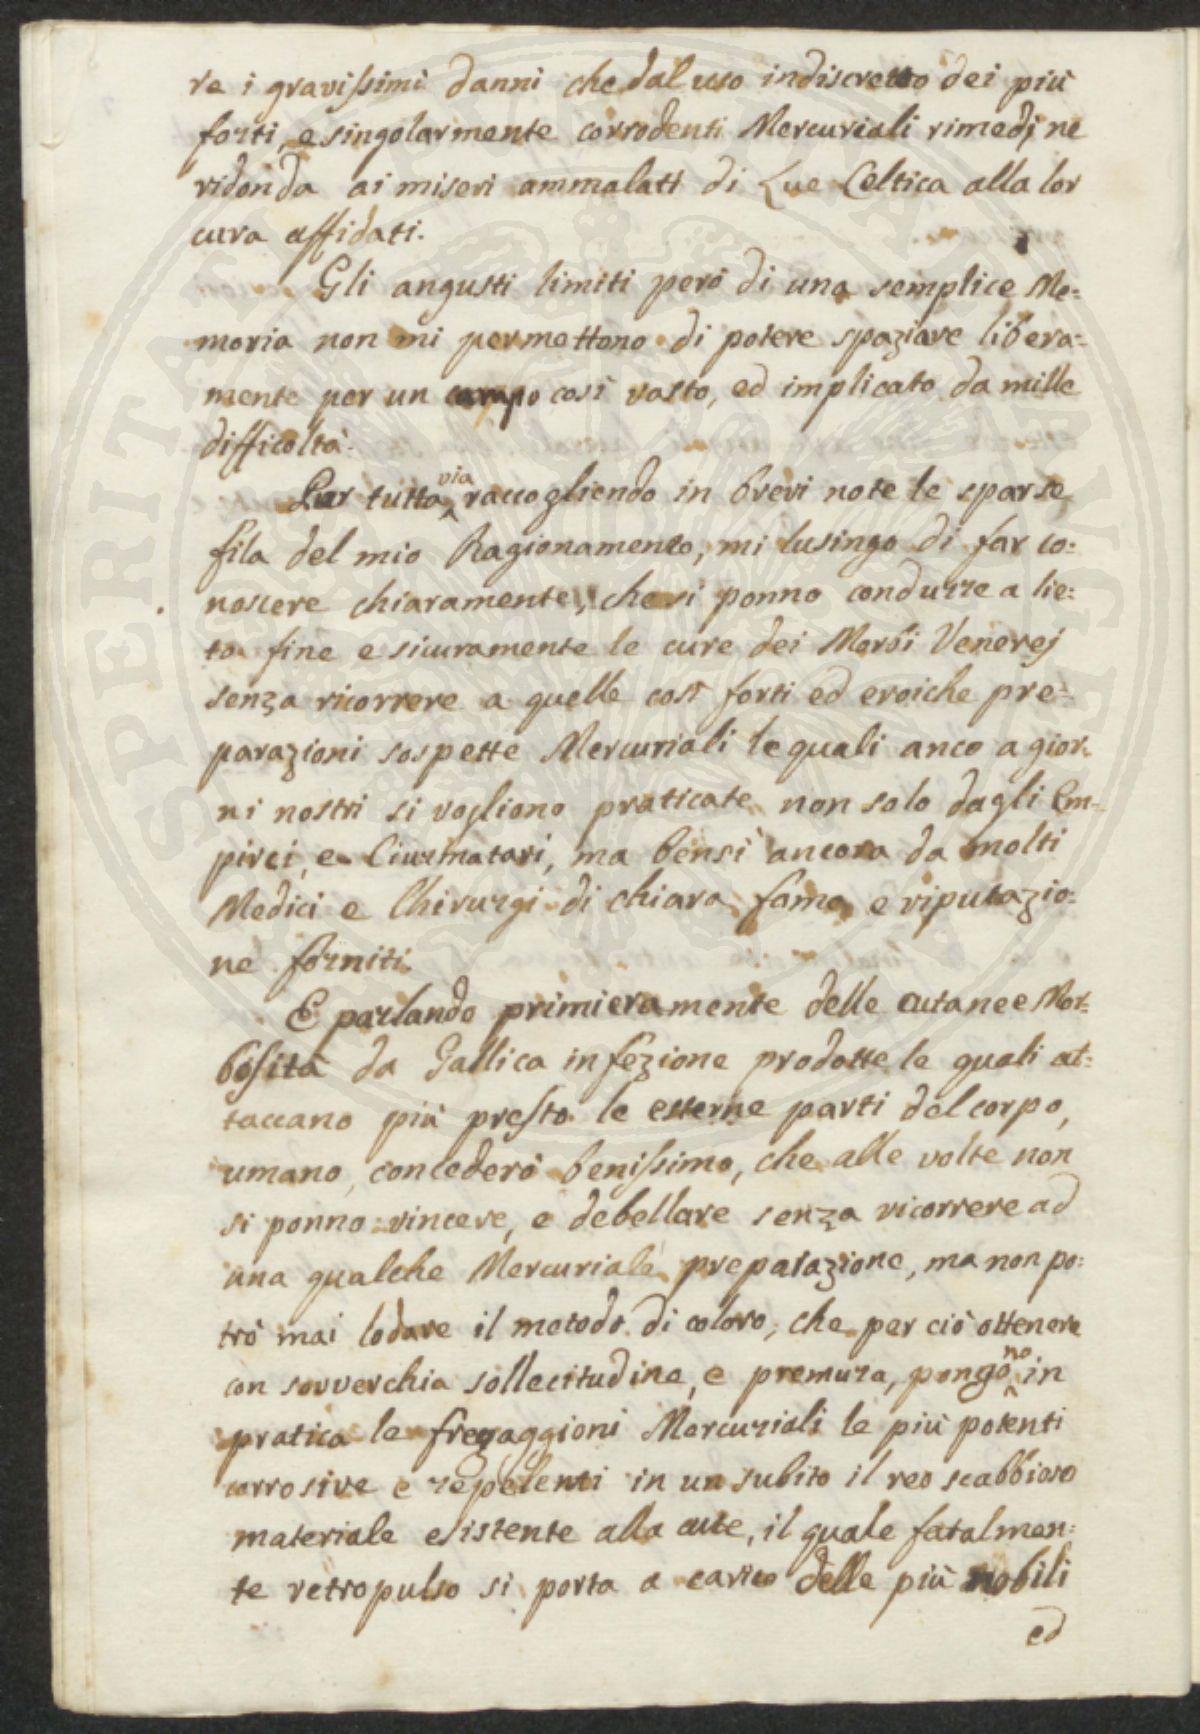 re i gravissimi danni che dal uso indiscretto dei più
forti, e singolarmente corrodenti Mercuriali rimedj ne
ridonda ai miseri ammalati di Lue Celtica alla lor
cura affidati.
Gli angusti limiti però di una semplice Me=
moria non mi permettono di potere spaziare libera=
mente per un campo così vasto, ed implicato da mille
difficoltà.
Pur tuttavia raccogliendo in brevi note le sparse
fila del mio Ragionamento, mi lusingo di far co=
noscere chiaramente, che si ponno condurre a lie=
to fine e sicuramente le cure dei Morbi Venerej
senza ricorrere a quelle così forti ed eroiche pre=
parazioni sospette Mercuriali le quali anco a gior=
ni nostri si vogliono praticate non solo dagli Em=
pirci, e Ciurmatori, ma bensì ancora da molti
Medici e Chirurgi di chiara fama, e riputazio=
ne forniti.
E parlando primieramente delle cutanee Mor=
bosità da Gallica infezione prodotte le quali at=
taccano più presto le esterne parti del corpo
umano, concederò benissimo, che alle volte non
si ponno vincere, e debellare senza ricorrere ad
una qualche Mercuriale preparazione, ma non po=
trò mai lodare il metodo di coloro, che per ciò ottenere
con soverchia sollecitudine, e premura, pongono in
pratica le fregaggioni Mercuriali le più potenti
corrosive e repelenti in un subito il reo scabbioso
materiale esistente alla cute, il quale fatalmen=
te retropulso si porta a carico delle più nobili
ed
SPERITATI VERITATE VINCI